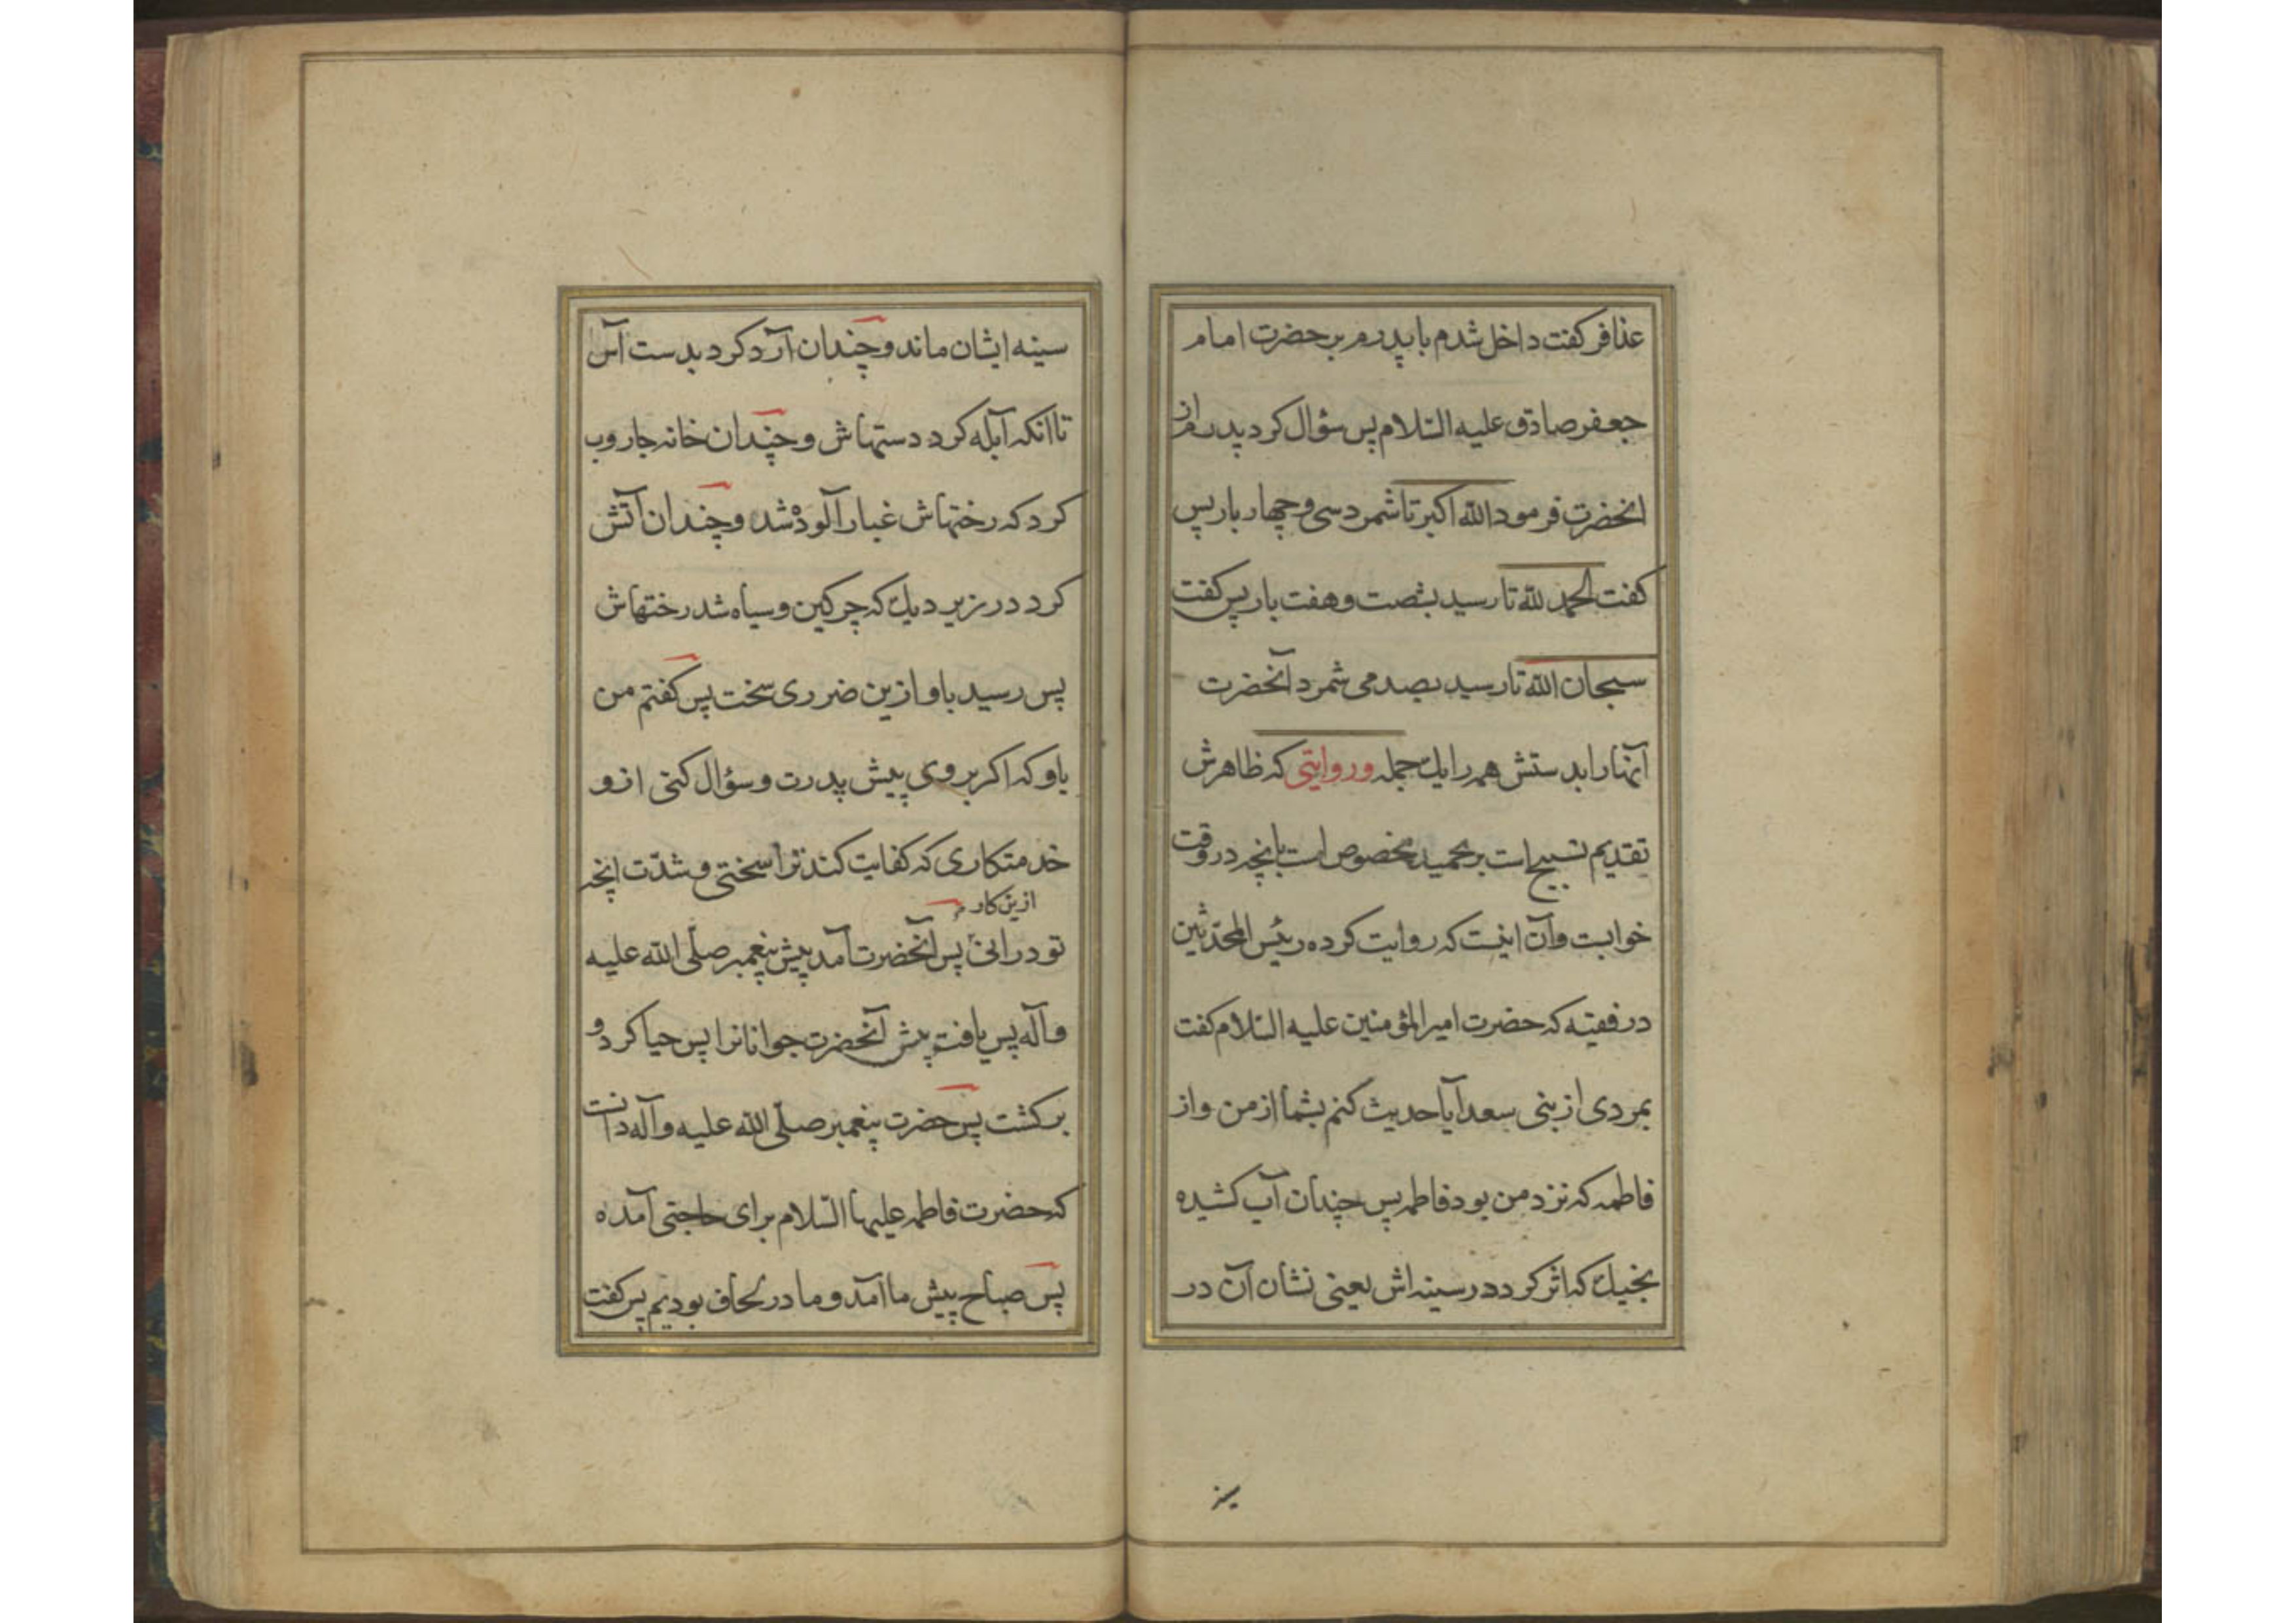 عذافر کفت داخل شدم با پدرم بر حضرت امام
جعفر صادق علیه السّلام پس سؤال کرد پدرم از
انحضرت فرمود الله اکبر تا شمرد سی و چهار بار پس
کفت الحمد لله تا رسید بشصت و هفت بار پس کفت
سبحان الله تا رسید بصد می شمرد آنحضرت
آنها را بدستش همه را یك جمله و روایتی که ظاهرش
تقدیم تسبیح است بر تحمید مخصوص است بانچه در وقت
خوابست و آن اینست که روایت کرده رئیس المحدّثین
در فقیه که حضرت امیر المؤمنین علیه السّلام کفت
بمردی از بنی سعد آیا حدیث کنم بشما از من و از
فاطمه که نزد من بود فاطمه پس چندان آب کشیده
بخیك که اثر کرد در سینه اش یعنی نشان آن در
سینه
سینه ایشان ماند و چندان آرد کرد بدست آس
تا انکه آبله کرد دستهاش و چندان خانه جاروب
کرد که رختهاش غبار آلوده شد و چندان آتش
کرد در زیر دیك که چرکین و سیاه شد رختهاش
پس رسید باو ازین ضرری سخت پس کفتم من
باو که اکر بروی پیش پدرت و سؤال کنی ازو
خدمتکاری که کفایت کند ترا سختی و شدّت انچه
ازین کار
تو درانی پس آنحضرت آمد پیش پیغمبر صلّی الله علیه
و آله پس یافت پیش آنحضرت جوانانرا پس حیا کرد و
بر کشت پس حضرت پیغمبر صلّی الله علیه و آله دانست
که حضرت فاطمه علیها السّلام برای حاجتی آمده
پس صباح پیش ما آمد و ما در لحاف بودیم پس کفت